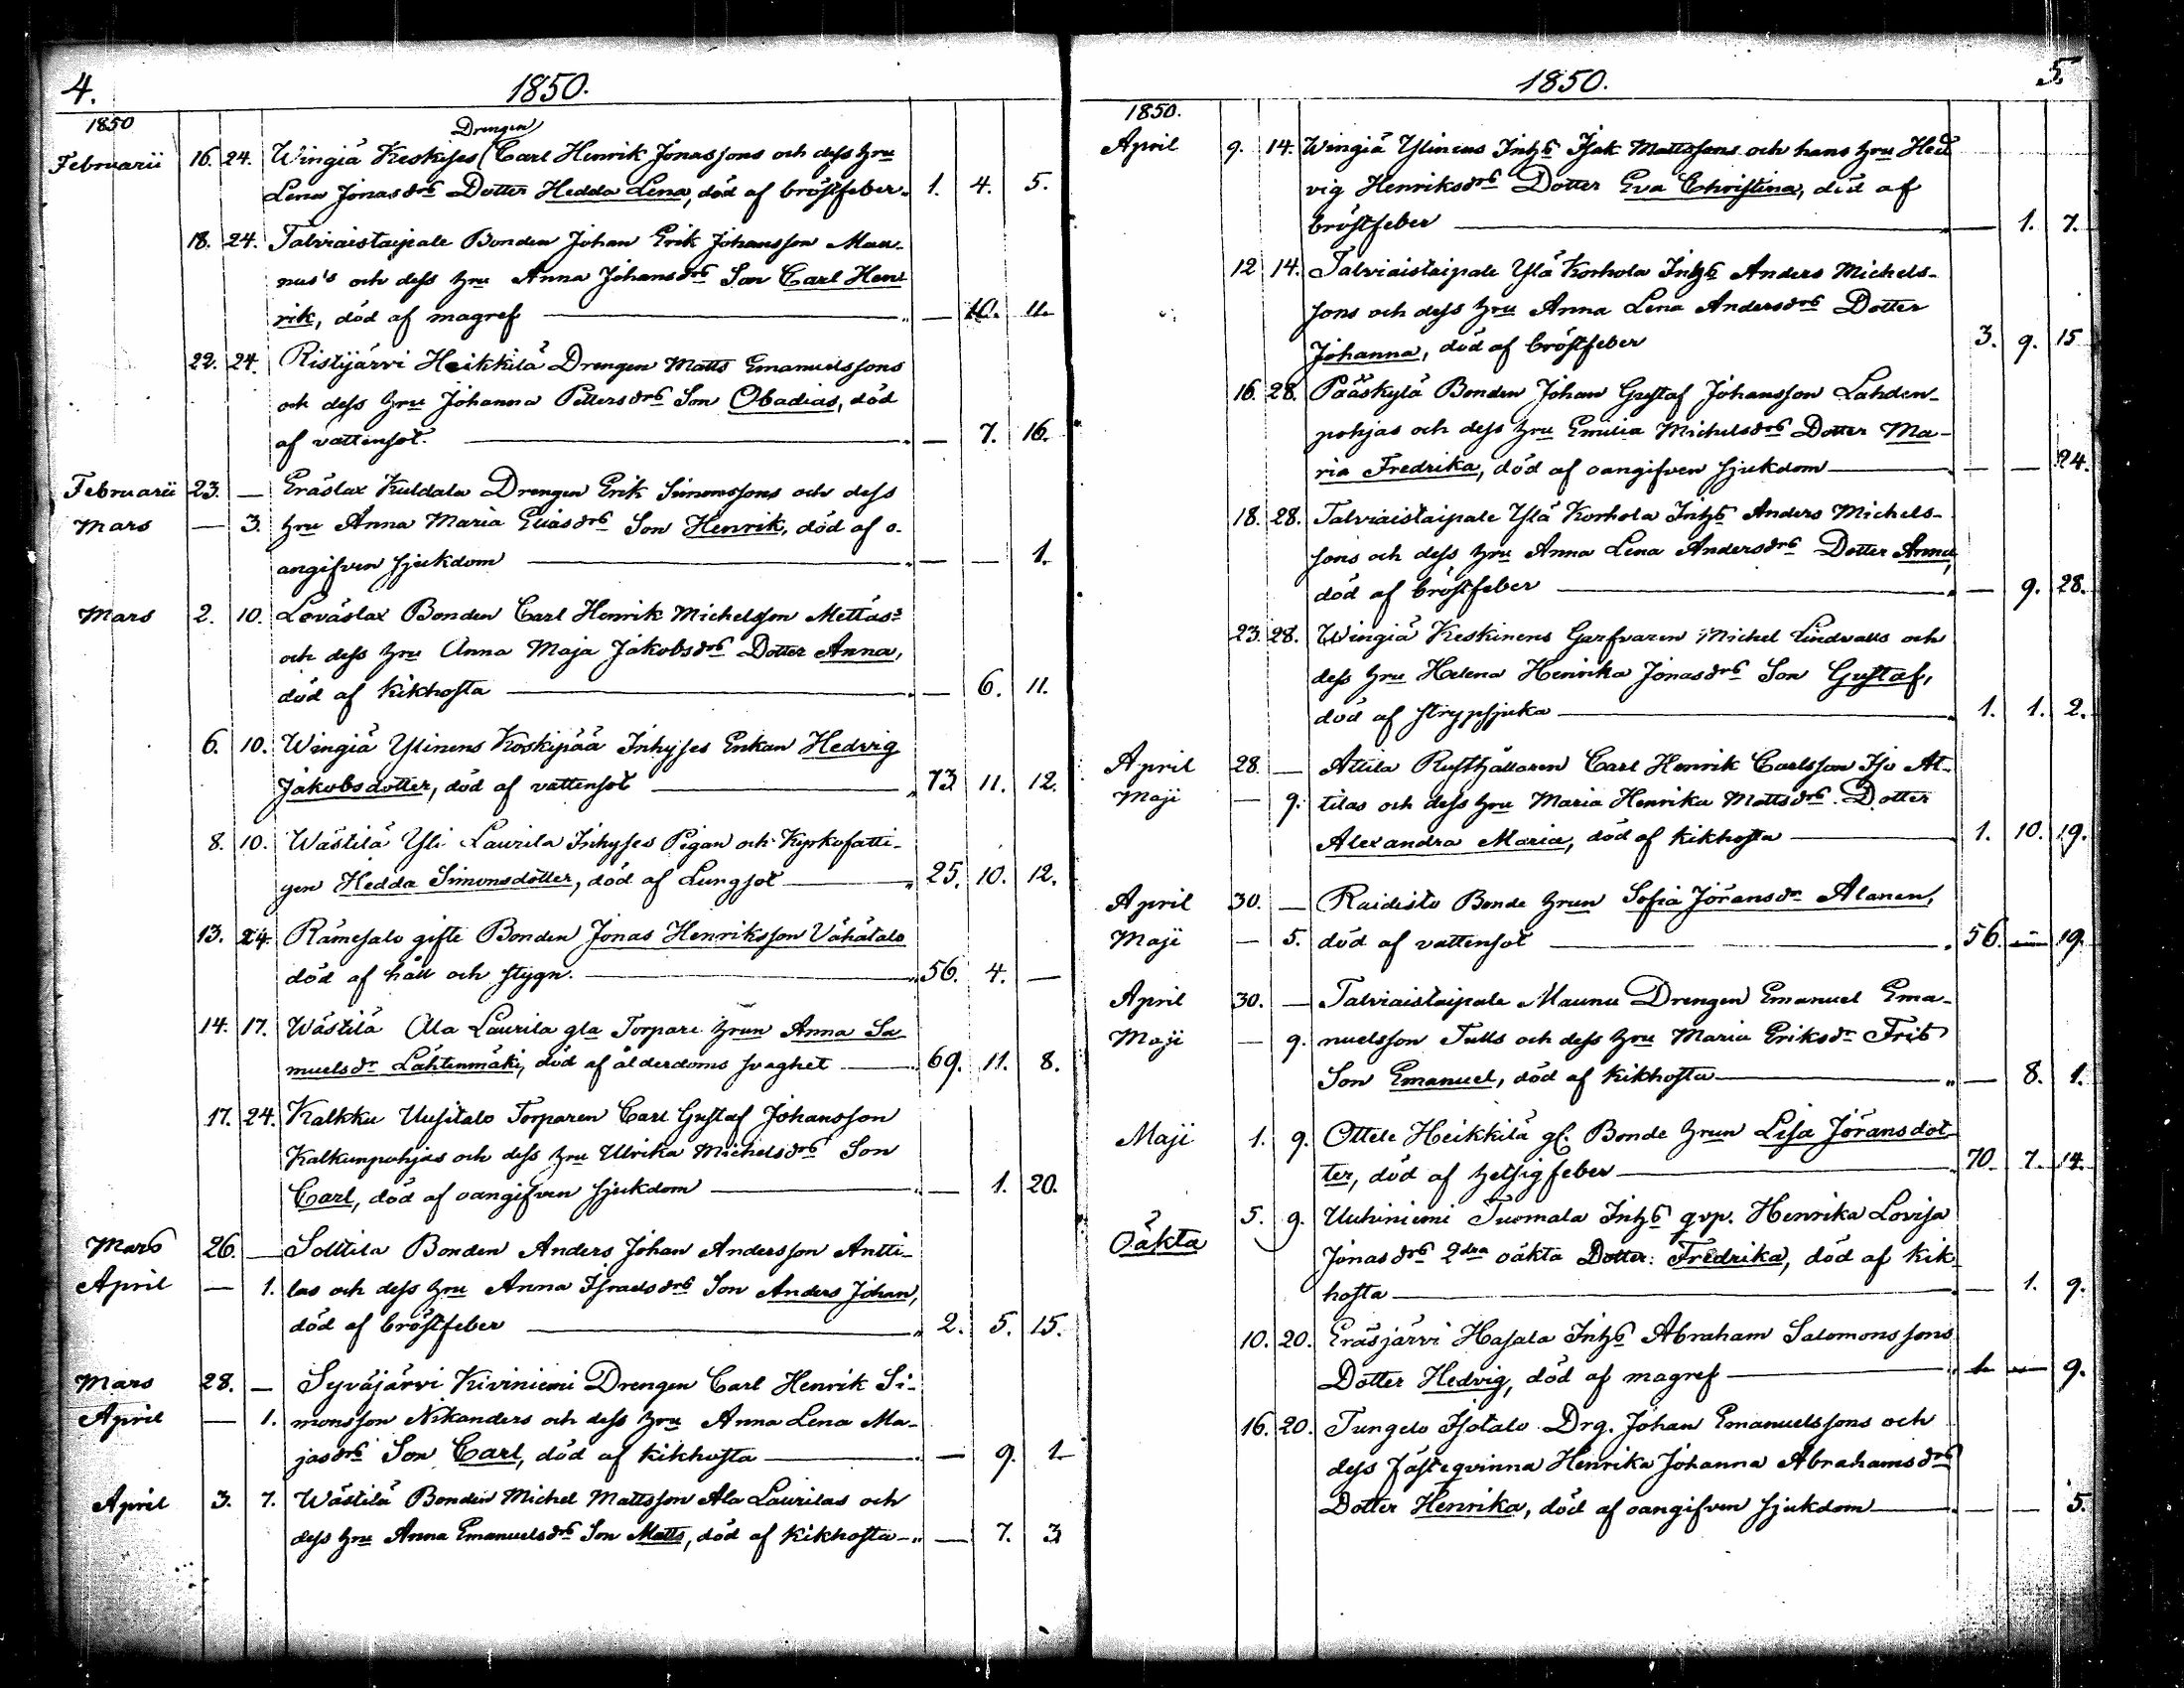 4.
1850.
1850
Drengen
Februarii 16. 24. Wingiä Keskises Carl Henrik Jonassons och dess hru
Lena Jonasdrs Dotter Hedda Lena, död af bröstfeber. 1. 4. 5.
18. 24. Talviaistaipale Bonden Johan Erik Johansson Mau-
nus's och dess hru Anna Johansdrs Son Carl Hen
rik, död af magref — 10. 11.
22. 24. Ristijärvi Heikkilä Drengen Matts Emanuelssons
och dess hru Johanna Pettersdrs Son Obadias, död
af vattensot. — 7. 16.
Februarii 23. — Eräslax Kuldala Drengen Erik Simonssons och dess
Mars — 3. hru Anna Maria Eliasdrs Son Henrik, död af o-
angifven sjukdom — — 1.
Mars 2. 10. Leväslax Bonden Carl Henrik Michelsson Mettäs
och dess hru Anna Maja Jakobsdrs Dotter Anna,
död af kikhosta — 6. 11.
6. 10. Wingiä Ylinens Koskipää Inhyses Enkan Hedvig
Jakobsdotter, död af vattensot 73 11. 12.
8. 10. Wästilä Yli Laurila Inhyses Pigan och Kyrkofatti-
gen Hedda Simonsdotter, död af Lungsot 25. 10. 12.
13. 24. Rämesalo gifte Bonden Jonas Henriksson Vähätalo
död af håll och stygn. 56. 4. —
14. 17. Wästilä Ala Laurila gla Torpare hrun Anna Sa
muelsdr Lähtenmäki, död af ålderdoms svaghet 69. 11. 8.
17. 24. Kalkku Uusitalo Torparen Carl Gustaf Johansson
Kalkunpohjas och dess hru Ulrika Michelsdrs Son
Carl, död af oangifven sjukdom — 1. 20.
Mars 26. — Solttila Bonden Anders Johan Andersson Antti-
April — 1. las och dess hru Anna Israelsdrs Son Anders Johan,
död af bröstfeber 2. 5. 15.
Mars 28. — Syväjärvi Kiviniemi Drengen Carl Henrik Si-
April — 1. monsson Nikanders och dess hru Anna Lena Ma-
jasdrs Son Carl, död af kikhosta — 9. 1
April 3. 7. Wästilä Bonden Michel Mattsson Ala Laurilas och
dess hru Anna Emanuelsdrs Son Matts, död af kikhosta — 7. 3
5.
1850.
1850.
April 9. 14. Wingiä Ylinens Inhs Isak Mattssons och hans hru Hed
vig Henriksdrs Dotter Eva Christina, död af
bröstfeber — 1. 7.
12 14. Talviaistaipale Ylä Korhola Inhs Anders Michels-
sons och dess hru Anna Lena Andersdrs Dotter
Johanna, död af bröstfeber 3. 9. 15
16. 28. Pääskylä Bonden Johan Gustaf Johansson Lahden-
pohjas och dess hru Emilia Michelsdrs Dotter Ma-
ria Fredrika, död af oangifven sjukdom — — 24.
18. 28. Talviaistaipale Ylä Korhola Inhs Anders Michels-
sons och dess hru Anna Lena Andersdrs Dotter Anna,
död af bröstfeber — 9. 28.
23. 28. Wingiä Keskinens Garfvaren Michel Lindvalls och
dess hru Helena Henrika Jonasdrs Son Gustaf,
död af strypsjuka 1. 1. 2.
April 28. — Attila Rusthållaren Carl Henrik Carlsson Iso At-
Maji — 9. tilas och dess hru Maria Henrika Mattsdrs Dotter
Alexandra Maria, död af kikhosta 1. 10. 19.
April 30. — Raidisto Bonde hrun Sofia Jöransdr Alanen,
Maji — 5. död af vattensot 56. — 19.
April 30. — Talviaistaipale Maunu Drengen Emanuel Ema-
Maji — 9. nuelsson Tulls och dess hru Maria Eriksdr Frits
Son Emanuel, död af kikhosta — 8. 1.
Maji 1. 9. Ottele Heikkilä gl. Bonde hrun Lisa Jöransdot-
ter, död af hetsigfeber 70. 7. 14.
Oäkta 5. 9. Uuhiniemi Tuomala Inhs qvp. Henrika Lovisa
Jonasdrs 2dra oäkta Dotter: Fredrika, död af kik-
hosta — 1. 9.
10. 20. Eräsjärvi Hasala Inhs Abraham Salomonssons
Dotter Hedvig, död af magref 1. — 9.
16. 20. Tungelo Isotalo Drg. Johan Emanuelssons och
dess fästeqvinna Henrika Johanna Abrahamsdrs
Dotter Henrika, död af oangifven sjukdom — — 5.